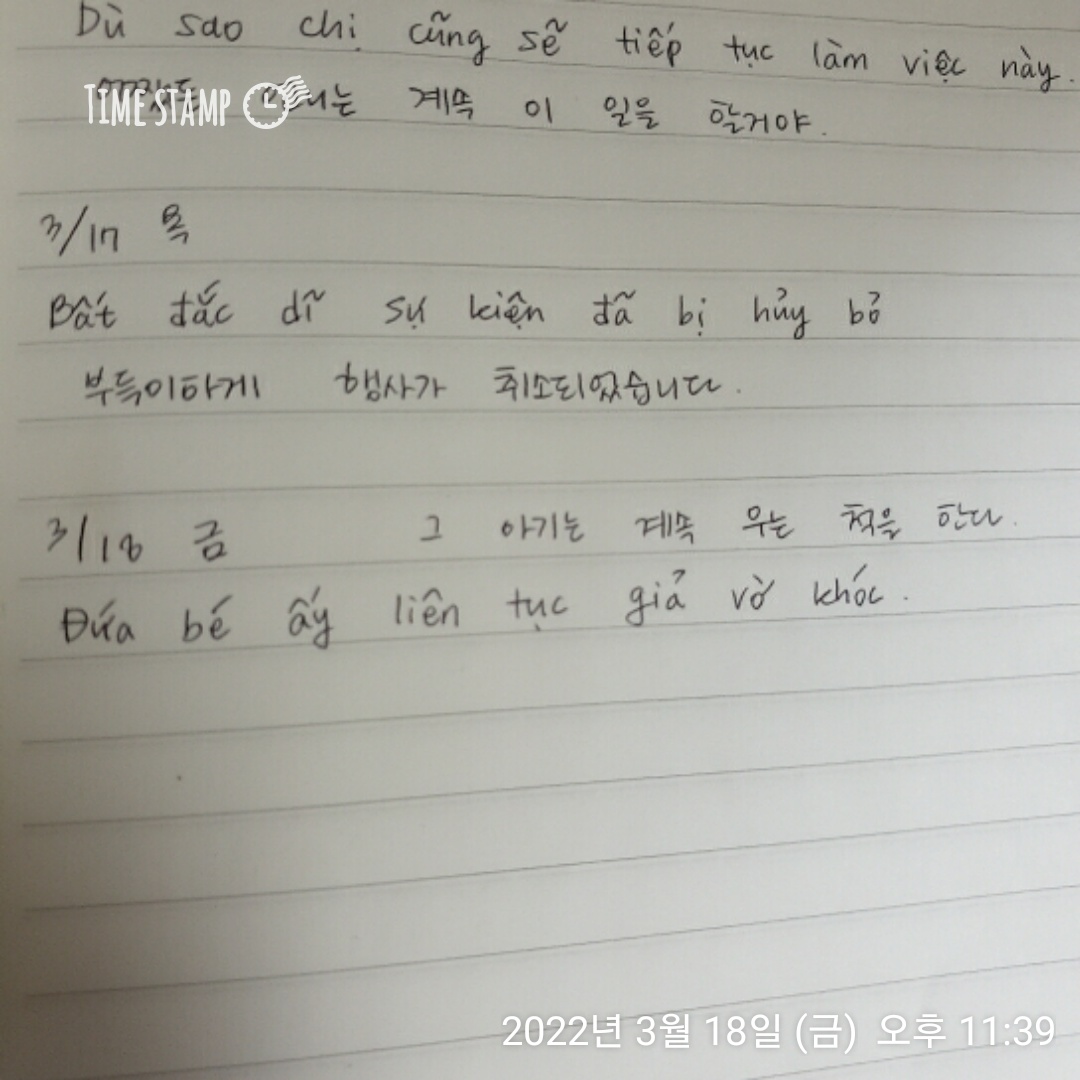 Dù sao chị cũng sẽ tiếp tục làm việc này.
TIME STAMP
계속 이 일을 할거야.
3/17 목
Bất đắc dĩ sự kiện đã bị hủy bỏ
부득이하게 행사가 취소되었습니다.
3/18 금 그 아기는 계속 우는 척을 한다.
Đứa bé ấy liên tục giả vờ khóc.
2022년 3월 18일 (금) 오후 11:39